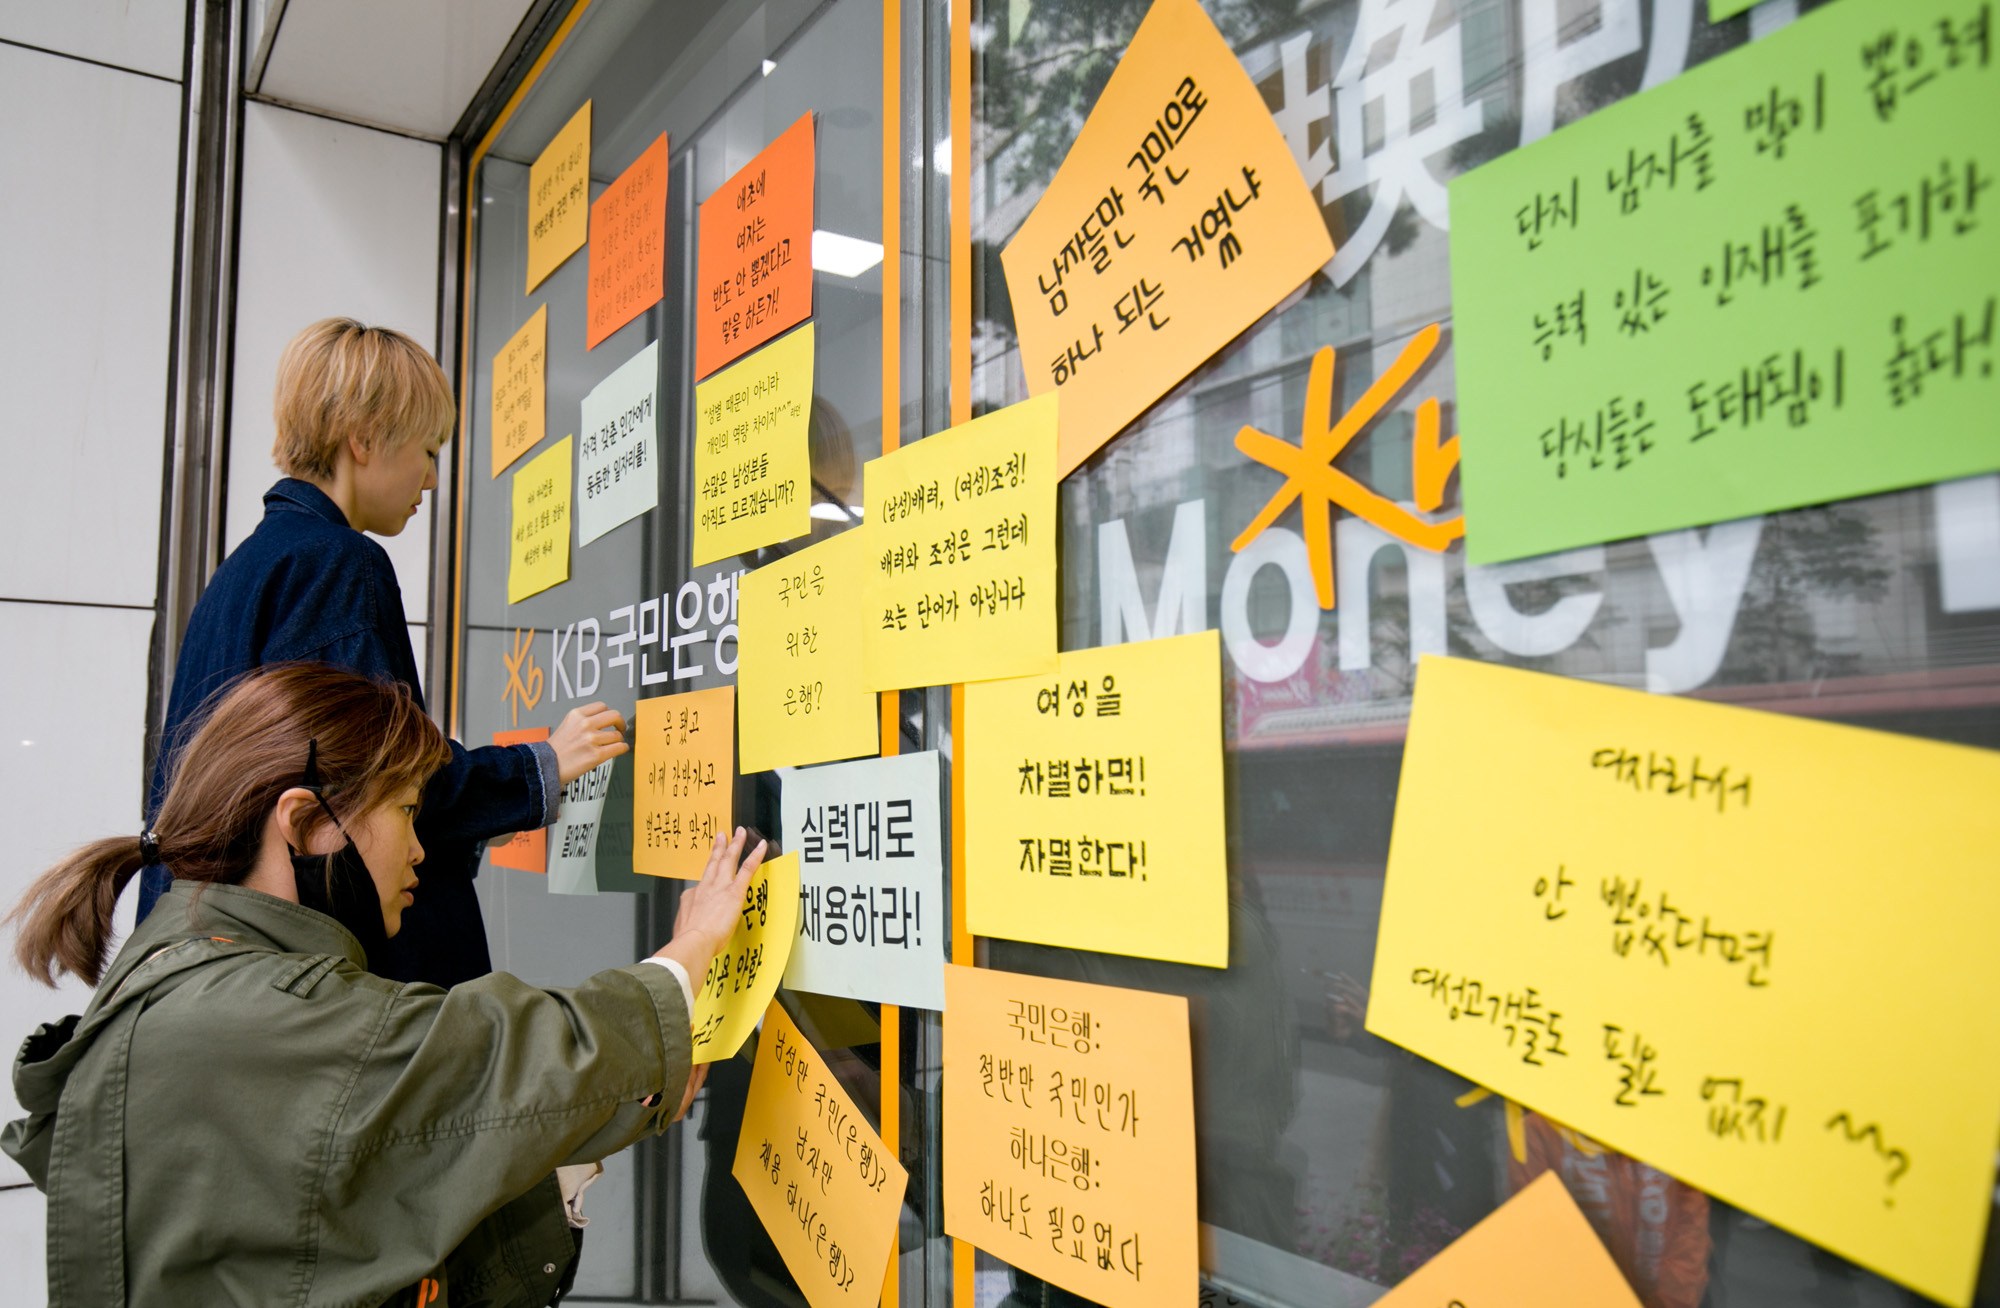 애초에
여자는
반도 안 뽑겠다고
말을 하든가!
자격 갖춘 인간에게
동등한 일자리를!
"성별 때문이 아니라
개인의 역량 차이지^^"라던
수많은 남성분들
아직도 모르겠습니까?
(남성)배려, (여성)조정!
배려와 조정은 그런데
쓰는 단어가 아닙니다
남자들만 국민으로
하나 되는 거였냐
단지 남자를 많이 뽑으려
능력 있는 인재를 포기한
당신들은 도태됨이 옳다!
Kb
Money
KB국민은행
국민을
위한
은행?
응 됐고
이제 감방가고
벌금폭탄 맞자!
#여자라서
떨어졌다
은행
이용 안함
실력대로
채용하라!
여성을
차별하면!
자멸한다!
여자라서
안 뽑았다면
여성고객들도 필요 없지 ^^?
남성만 국민(은행)?
남자만
채용 하나(은행)?
국민은행:
절반만 국민인가
하나은행:
하나도 필요없다